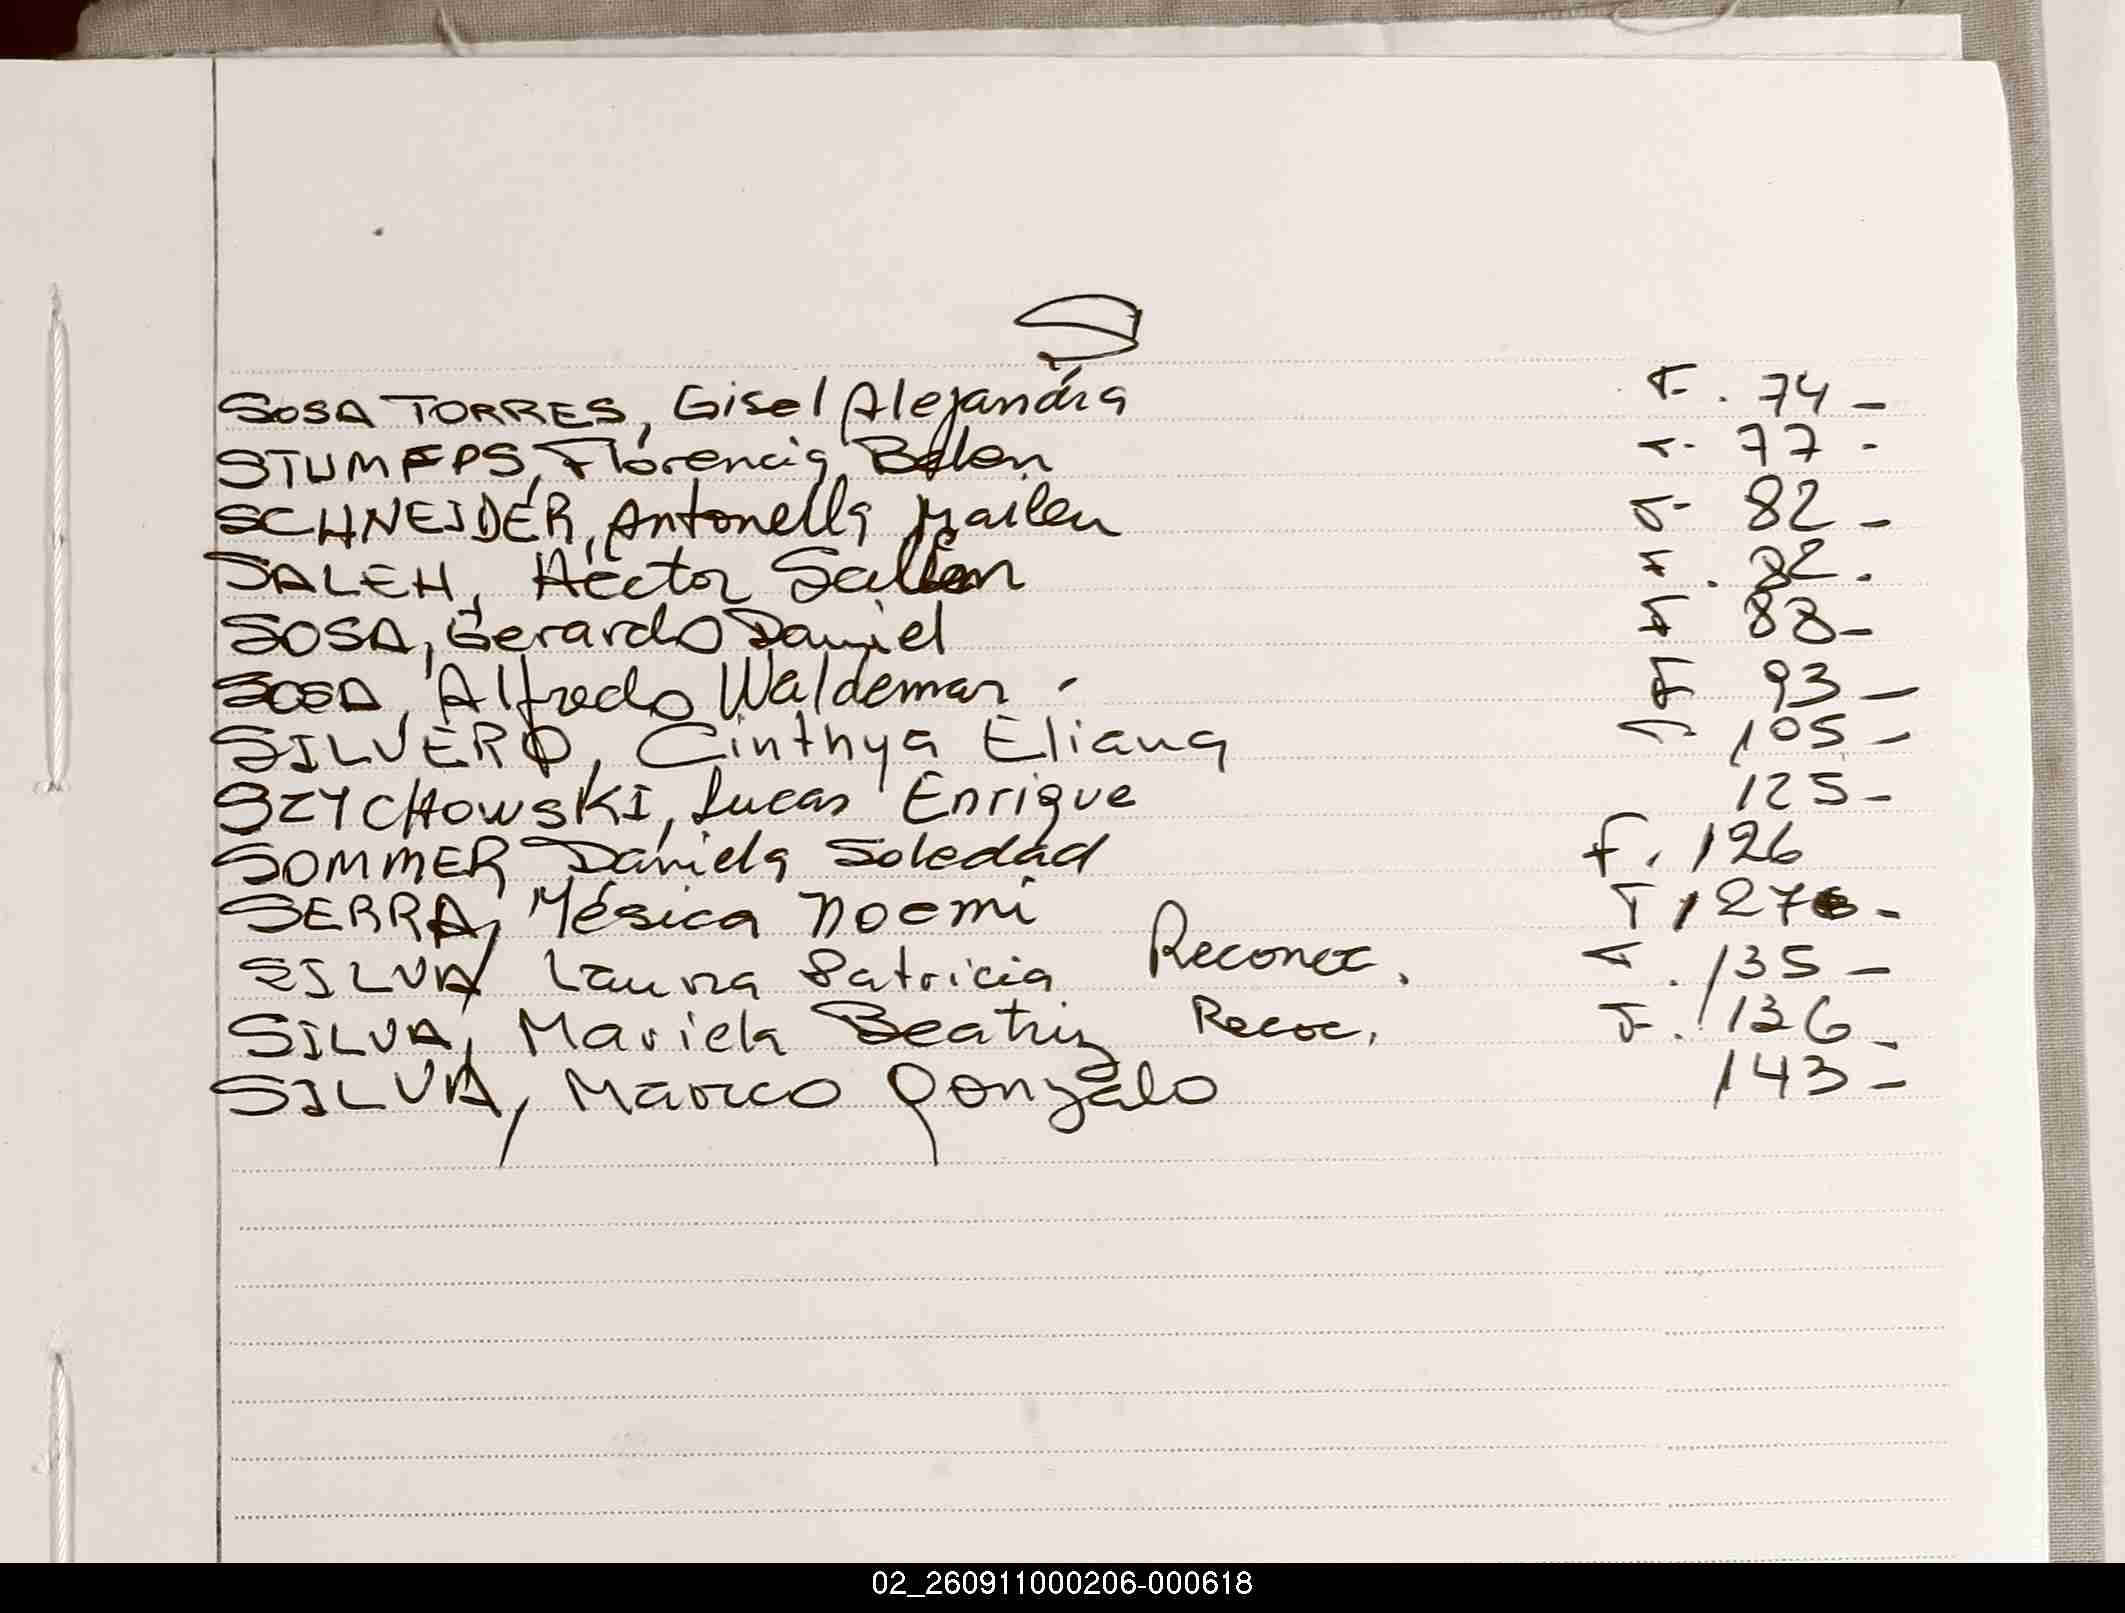 S
SOSA TORRES, Gisel Alejandra F. 74 -
STUMFPS, Florencia Belen F. 77 -
SCHNEIDER, Antonella Mailen F. 82 -
SALEH, Héctor F. 82.
SOSA, Gerardo Daniel F 88 -
SOSA, Alfredo Waldemar - F 93 -
SILVERO, Cinthya Eliana F 105 -
SZYCHOWSKI, Lucas Enrique 125 -
SOMMER Daniela Soledad F. 126
SERRA, Yésica Noemi F 127 -
SILVA, Laura Patricia Reconoc. F. 135 -
SILVA, Mariela Beatriz Recoc. F. 136 -
SILVA, Marco Gonzalo 143 -
02_260911000206-000618